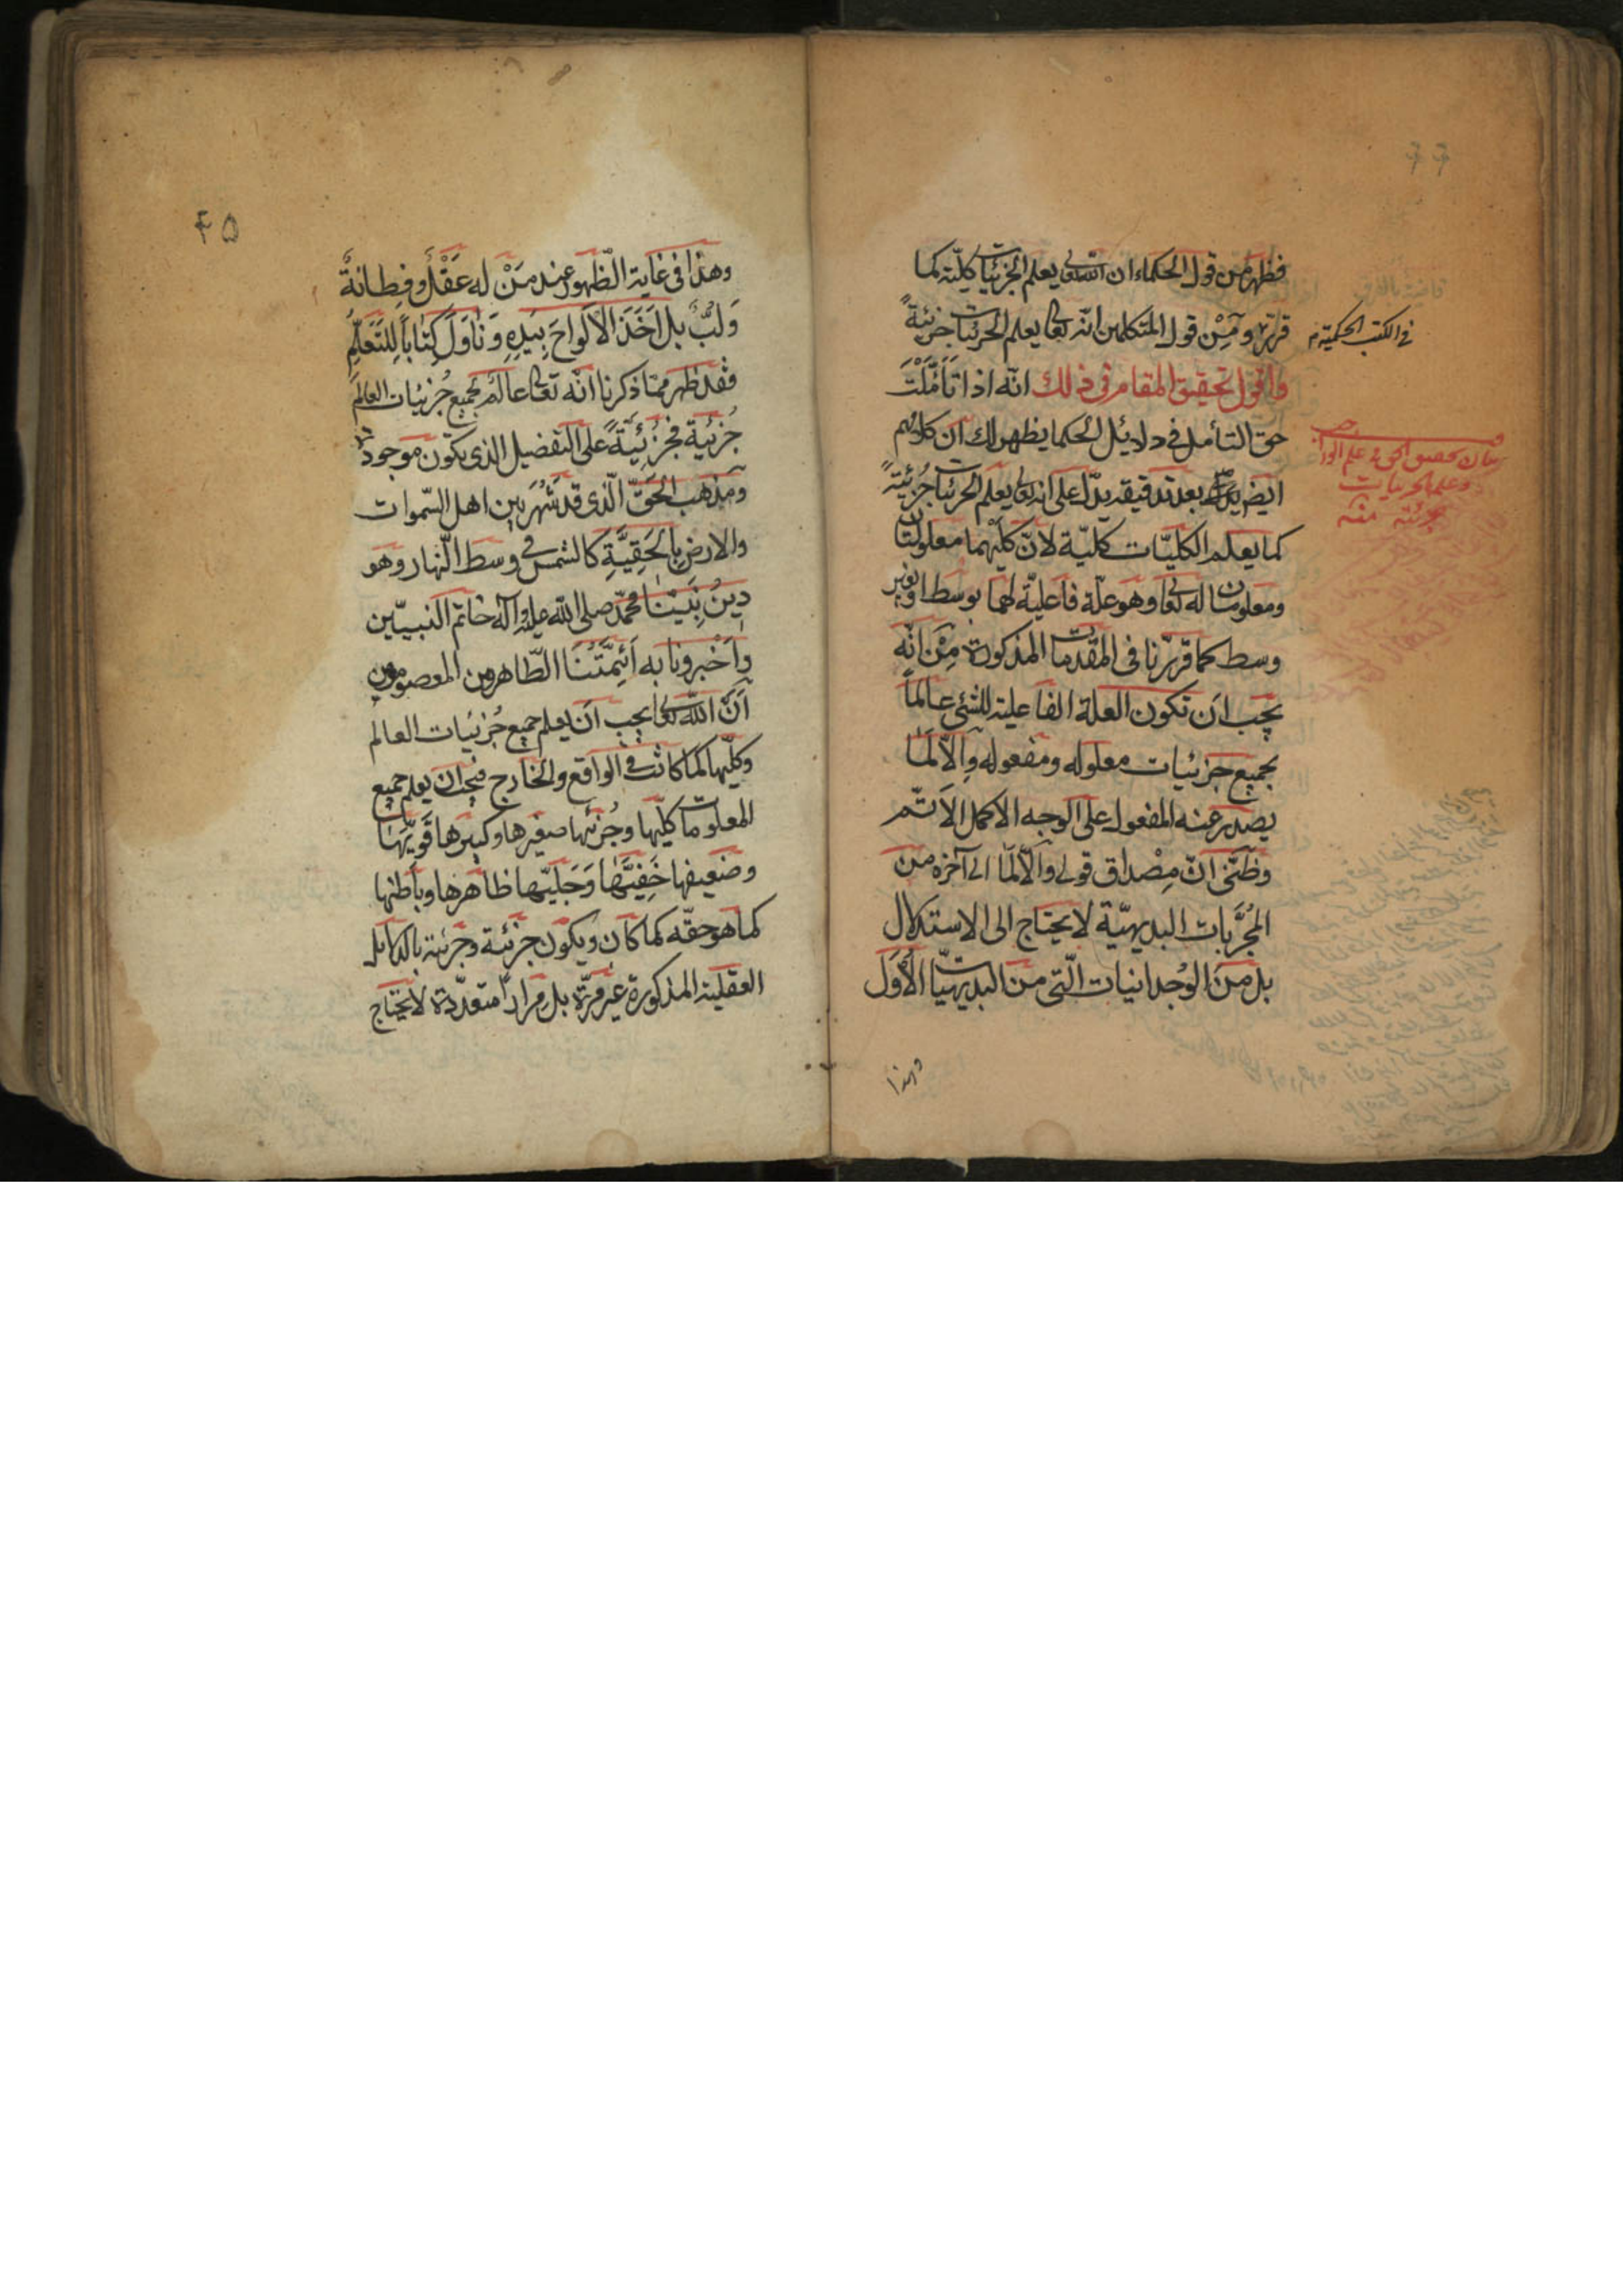 فظهر من قول الحكماء ان الله تعالى يعلم الجزئيات كليّة كما
قرّر و مِنْ قول المتكلمين انّه تعالى يعلم الجزئيات جزئيةً
في الكتب الحكمية م
واقول لتحقيق المقام في ذلك انّه اذا تَأَمَّلْتَ
حق التأمل في دلائل الحكما يظهر لك ان كلامهم
بيان تحقيق الحق في علم
وعلم الجزئيات
جزئية منه
ايض بعد تدقيقه يدلّ على انه تعالى يعلم الجزئيات جُزئيّةً
كما يعلم الكليّات كليّة لانّ كليهما معلولتان
ومعلومتان له تعالى وهو علّة فاعليّة لهما بوسط او بغير
وسط كما قررنا في المقدمات المذكورة مِنْ انّه
يجب ان تكون العلة الفاعلية للشئ عالماً
بجميع جزئيات معلوله ومفعوله والّا لَمَا
يصدر عنه المفعول على الوجه الاكمل الاتّم
وظَنّي انّ مِصْداق قولي والّا لَمَا الى آخره من
المُجَرَّبات البديهيّة لا يحتاج الى الاستدلال
بل من الوُجدانيات الّتي من البديهيّات الأُوَل
وهذا
۴۵
وهذا في غاية الظّهور عند مَنْ له عَقْلٌ وفِطانةٌ
وَلُبٌّ بل اَخَذَ الالواحَ بِيَدِهِ وَنٰاوَلَ كِتٰاباً لِلتَعَلُّمِ
فقد ظهر ممّا ذكرنا انّه تعالى عالم بجميع جُزئيات العالم
جُزئيةً فجُزئيّةً على التفضيل الذي يكون موجوداً
ومذهب الحَقّ الّذي قد شُهِرَ بين اهل السّموات
والارض بِالحَقِيَّةِ كالشمس في وسط النّهار وهو
دِينُ نَبِيّنٰا محمّد صلى الله عليه وآله خاتم النبيّين
واَخْبرونا به اَئِمَّتُنَا الطّاهرون المعصومون
اَنَّ اللّه تعالى يجب اَنْ يعلم جميع جُزئيات العالم
وكلّيها كما كانت في الواقع والخارج فيجب ان يعلم جميع
المعلومات كلّيها وجُزئها صغيرها وكبيرها قَويّها
وضَعيفها خَفِيَّها وَجَليّها ظاهرها وباطنها
كما هو حقّه كما كان ويكون جزئية وجزئية بالدلائل
العقلية المذكورة غير مرّة بل مراراً متعدّدة لا يحتاج